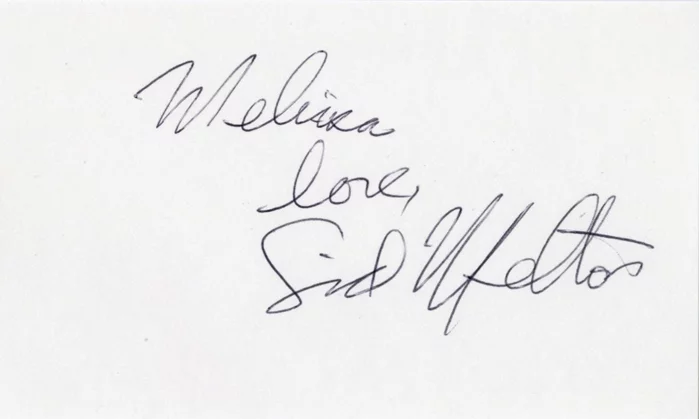 Melissa
love,
Sid Melton